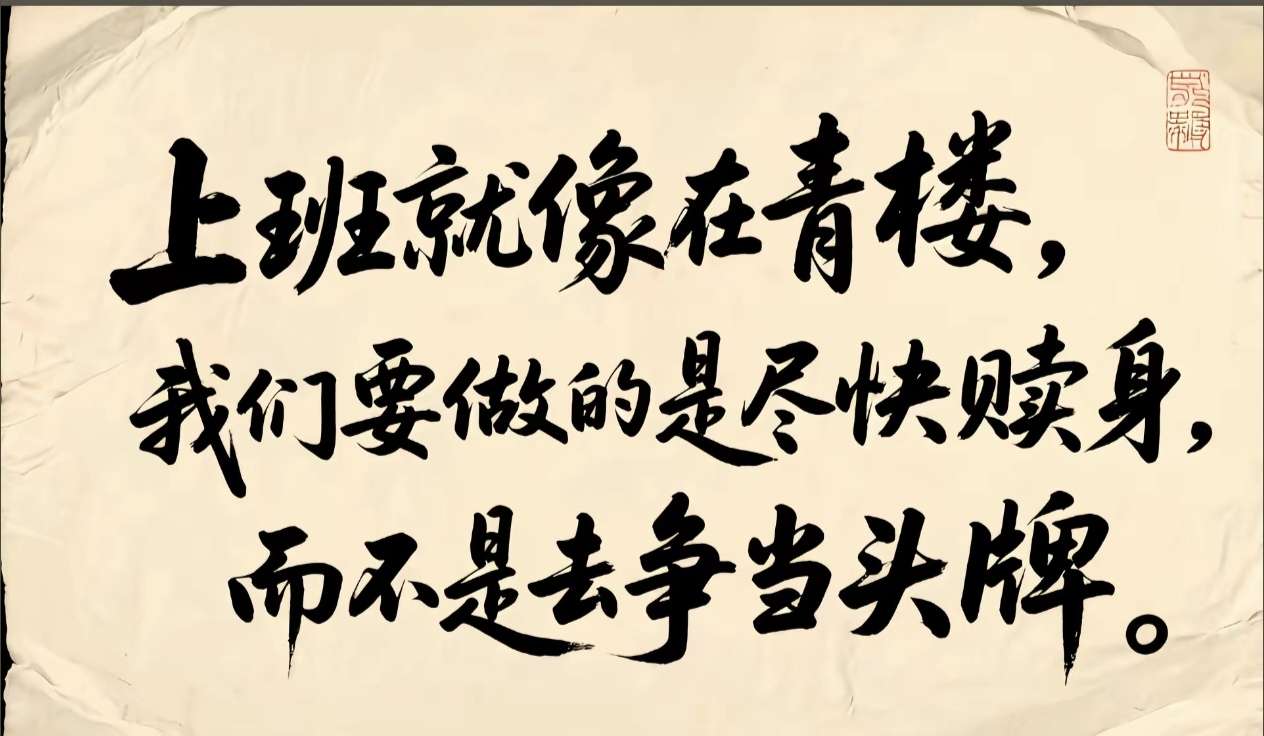 上班就像在青楼，
我们要做的是尽快赎身，
而不是去争当头牌。